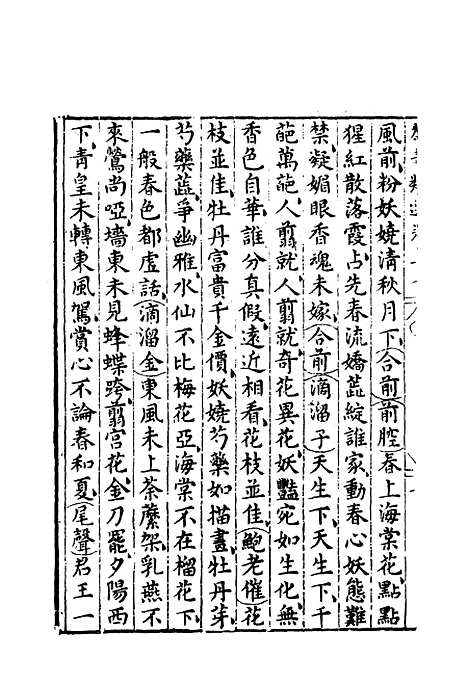 風前粉妖嬈清秋月下合前前腔春上海棠花點點
猩紅散落霞占先春流嬌蕋綻誰家動春心妖態難
禁凝媚眼香魂未嫁合前滴溜子天生下天生下千
葩萬葩人翦就人翦就奇花異花妖豔宛如生化無
香色自華誰分真假遠近相看花枝並佳鮑老催花
枝並佳牡丹富貴千金價妖嬈芍藥如描畫牡丹芽
芍藥蕋爭幽雅水仙不比梅花亞海棠不在榴花下
一般春色都虛話滴溜金東風未上荼蘼架乳燕不
來鶯尚啞墻東未見蜂蝶跨翦宮花金刀罷夕陽西
下青皇未轉東風駕賞心不論春和夏尾聲君王一